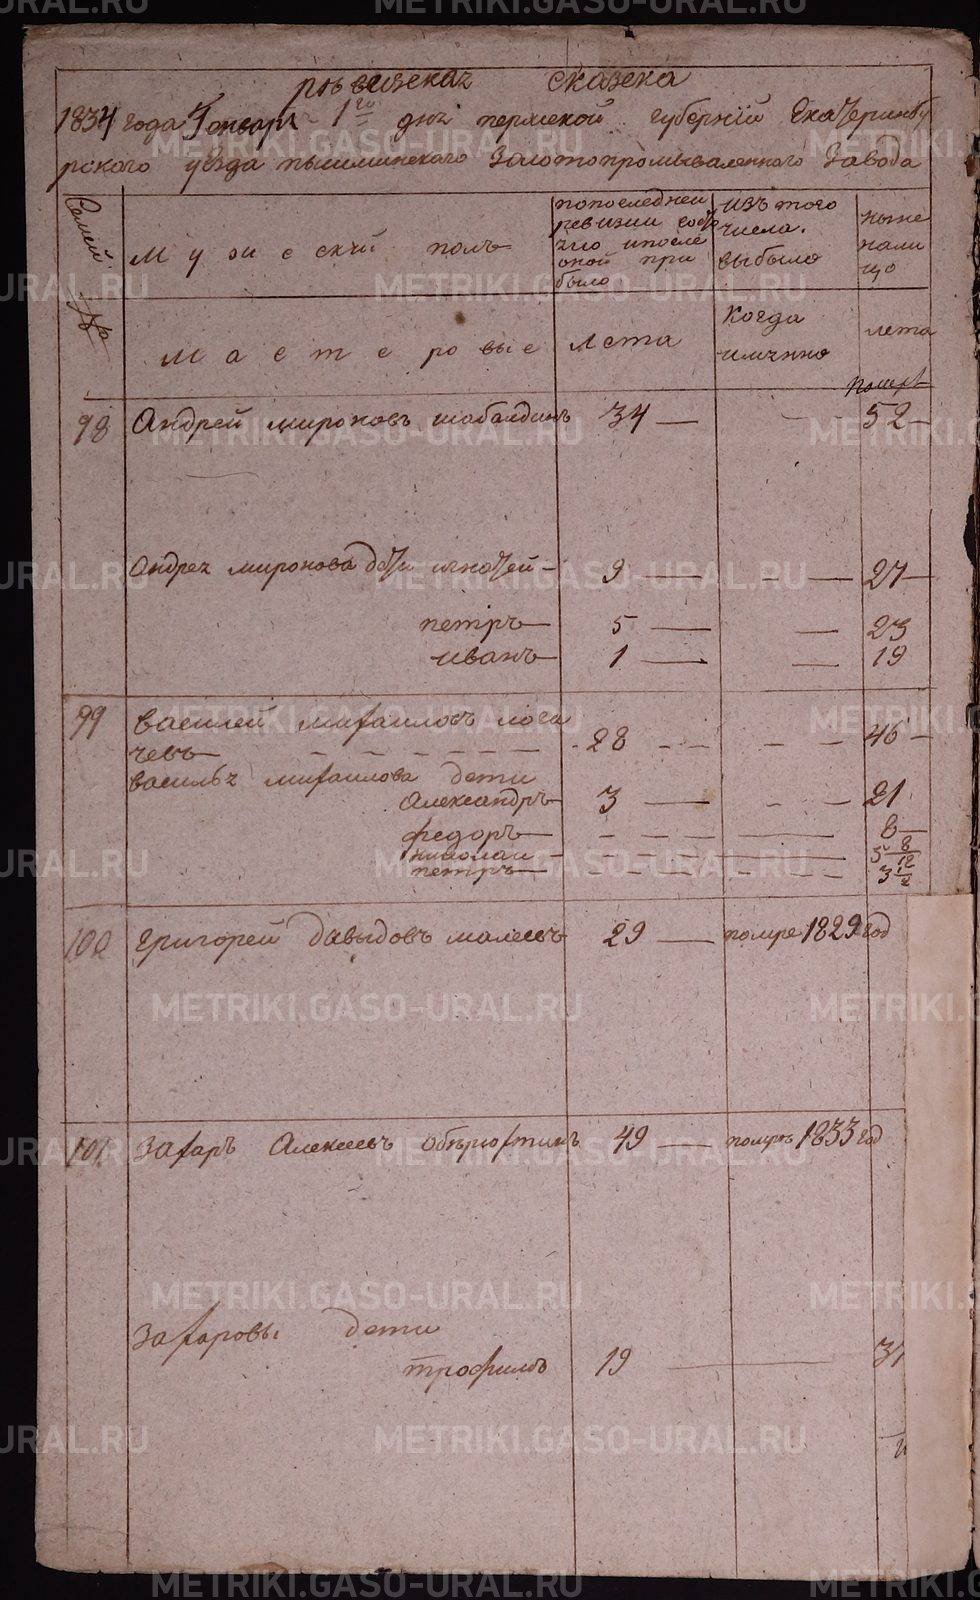 METRIKI.GASO-URAL.RU
ревизская сказка
1834 года Генваря 1го дня пермской губернiй Екатеринбу
рского уезда пышминского золотопромываленного завода
Семей №
Мужескiй полъ
попоследней ревизии состояло и после оной прибыло
изъ того числа выбыло
ныне налицо
Мастеровые
Лета
Когда имянно
лета
98 Андрей мироновъ шабалдинъ 34 — 52 —
Андрея миронова дети игнатей — 9 — — — 27 —
петръ — 5 — — 23
иванъ — 1 — — 19
99 василей михаиловъ лога
чевъ — 28 — — 46 —
василья михаилова дети
Александръ — 3 — — 21
федоръ — — — 8 —
николаи — — — 5 8/12
петръ — — — 3 1/2
100 григорей давыдовъ малеевъ 29 — помре 1829 год
101 Захаръ Алексеевъ обърюхтинъ 49 — помръ 1833 год
Захаровы дети
трофимъ 19 — 31